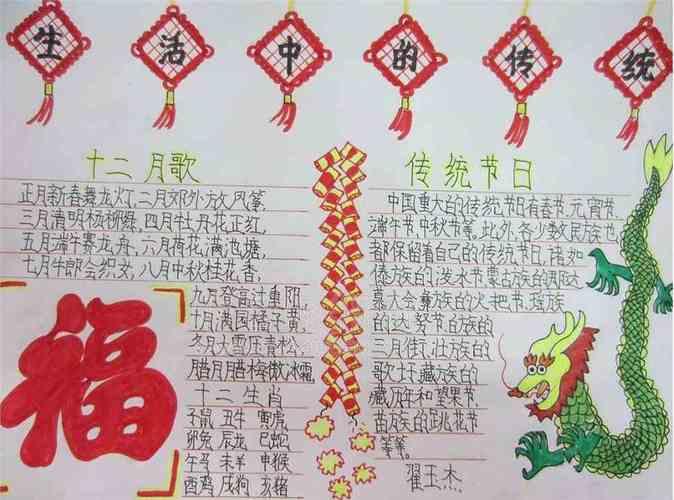 生活中的传统
十二月歌
正月新春舞龙灯,二月郊外放风筝,
三月清明杨柳绿,四月牡丹花正红,
五月端午赛龙舟,六月荷花满池塘,
七月牛郎会织女,八月中秋桂花香,
九月登高过重阳,
十月满园橘子黄,
冬月大雪压青松,
腊月腊梅傲冰霜,
十二生肖
子鼠 丑牛 寅虎
卯兔 辰龙 巳蛇
午马 未羊 申猴
酉鸡 戌狗 亥猪
福
传统节日
中国重大的传统节日有春节、元宵节、
端午节、中秋节等,此外,各少数民族也
都保留着自己的传统节日,诸如
傣族的泼水节蒙古族的那达
慕大会彝族的火把节,瑶族
的达努节,白族的
三月街,壮族的
歌圩,藏族的
藏历年和望果节
苗族的跳花节
等等。
翟玉杰